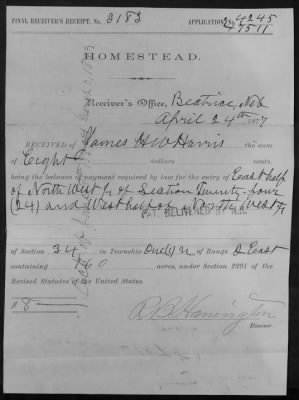 FINAL RECEIVER'S RECEIPT, No. 3183 APPLICATION, No. 4245
47511
HOMESTEAD.
Receiver's Office, Beatrice, Neb
April 24th 1877
RECEIVED OF James H W Harris the sum
of Eight dollars cents,
being the balance of payment required by law for the entry of East half
of North West ¼ of Section Twenty-four
(24) and West half of North West ¼
of Section 34 in Township One (1) N of Range 2 East
containing 160 acres, under Section 2291 of the
Revised Statutes of the United States.
$ 8
Receiver.